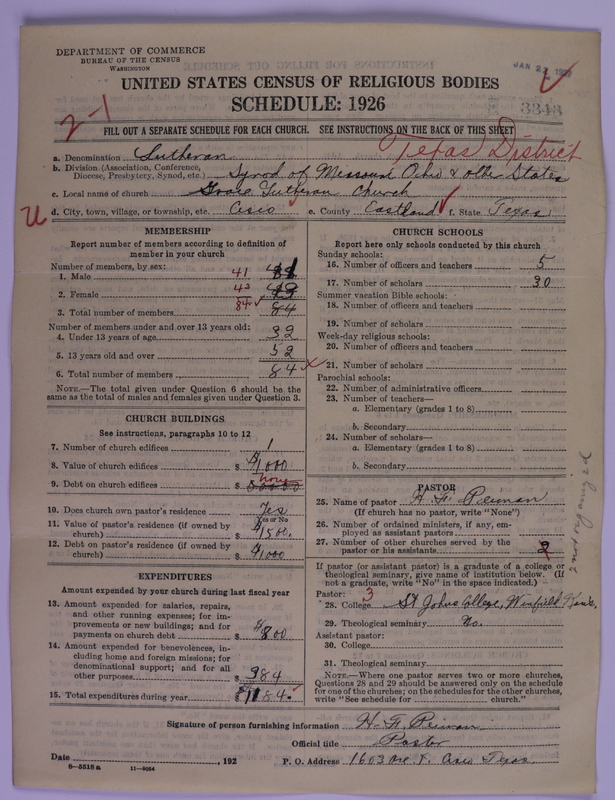 DEPARTMENT OF COMMERCE
BUREAU OF THE CENSUS
WASHINGTON
JAN 22
UNITED STATES CENSUS OF RELIGIOUS BODIES
SCHEDULE: 1926
3343
2-1
FILL OUT A SEPARATE SCHEDULE FOR EACH CHURCH. SEE INSTRUCTIONS ON THE BACK OF THIS SHEET
Texas District
a. Denomination Lutheran
b. Division (Association, Conference, Diocese, Presbytery, Synod, etc.) Synod of Missouri Ohio & other States
c. Local name of church Grace Lutheran Church
d. City, town, village, or township, etc. Cisco e. County Eastland f. State Texas
MEMBERSHIP
Report number of members according to definition of
member in your church
Number of members, by sex:
1. Male 41
2. Female 43
3. Total number of members 84 84
Number of members under and over 13 years old:
4. Under 13 years of age 32
5. 13 years old and over 52
6. Total number of members 84
NOTE.—The total given under Question 6 should be the
same as the total of males and females given under Question 3.
CHURCH BUILDINGS
See instructions, paragraphs 10 to 12
7. Number of church edifices 1
8. Value of church edifices $ 1000
9. Debt on church edifices $ none
10. Does church own pastor's residence Yes
Yes or No
11. Value of pastor's residence (if owned by
church) $ 1500.
12. Debt on pastor's residence (if owned by
church) $ 1000
EXPENDITURES
Amount expended by your church during last fiscal year
13. Amount expended for salaries, repairs,
and other running expenses; for im-
provements or new buildings; and for
payments on church debt $ 800
14. Amount expended for benevolences, in-
cluding home and foreign missions; for
denominational support; and for all
other purposes 384
15. Total expenditures during year $ 1184.
CHURCH SCHOOLS
Report here only schools conducted by this church
Sunday schools:
16. Number of officers and teachers 5
17. Number of scholars 30
Summer vacation Bible schools:
18. Number of officers and teachers
19. Number of scholars
Week-day religious schools:
20. Number of officers and teachers
21. Number of scholars
Parochial schools:
22. Number of administrative officers
23. Number of teachers—
a. Elementary (grades 1 to 8)
b. Secondary
24. Number of scholars—
a. Elementary (grades 1 to 8)
b. Secondary
PASTOR
25. Name of pastor H. F. Peiman
(If church has no pastor, write "None")
26. Number of ordained ministers, if any, em-
ployed as assistant pastors
27. Number of other churches served by the
pastor or his assistants 2
If pastor (or assistant pastor) is a graduate of a college or
theological seminary, give name of institution below. (If
not a graduate, write "No" in the space indicated.)
Pastor: 3
28. College St Johns College, Winfield Kans.
29. Theological seminary No.
Assistant pastor:
30. College
31. Theological seminary
NOTE.—Where one pastor serves two or more churches,
Questions 28 and 29 should be answered only on the schedule
for one of the churches; on the schedules for the other churches,
write "See schedule for ........ church."
Signature of person furnishing information H. F. Peiman
Official title Pastor
Date , 192 P. O. Address 1603 Ave F. Cisco Texas
8—5518 a 11—9054